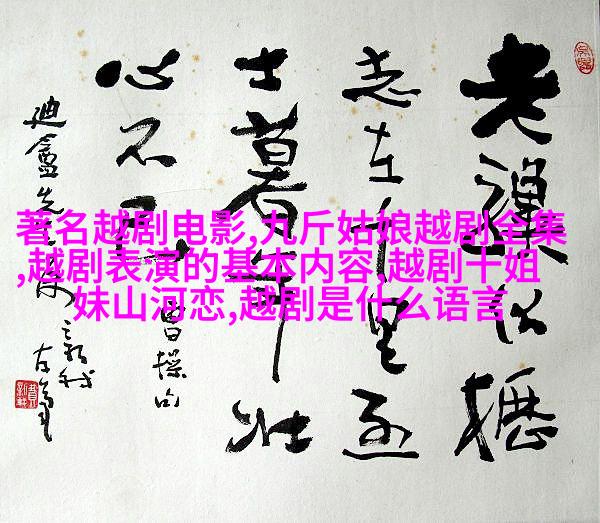 著名越剧电影,九斤姑娘越剧全集
,越剧表演的基本内容,越剧十姐
妹山河恋,越剧是什么语言
老驥伏櫪
志在千里烈
士暮年壮
心不已
曹操句
迪盦先生